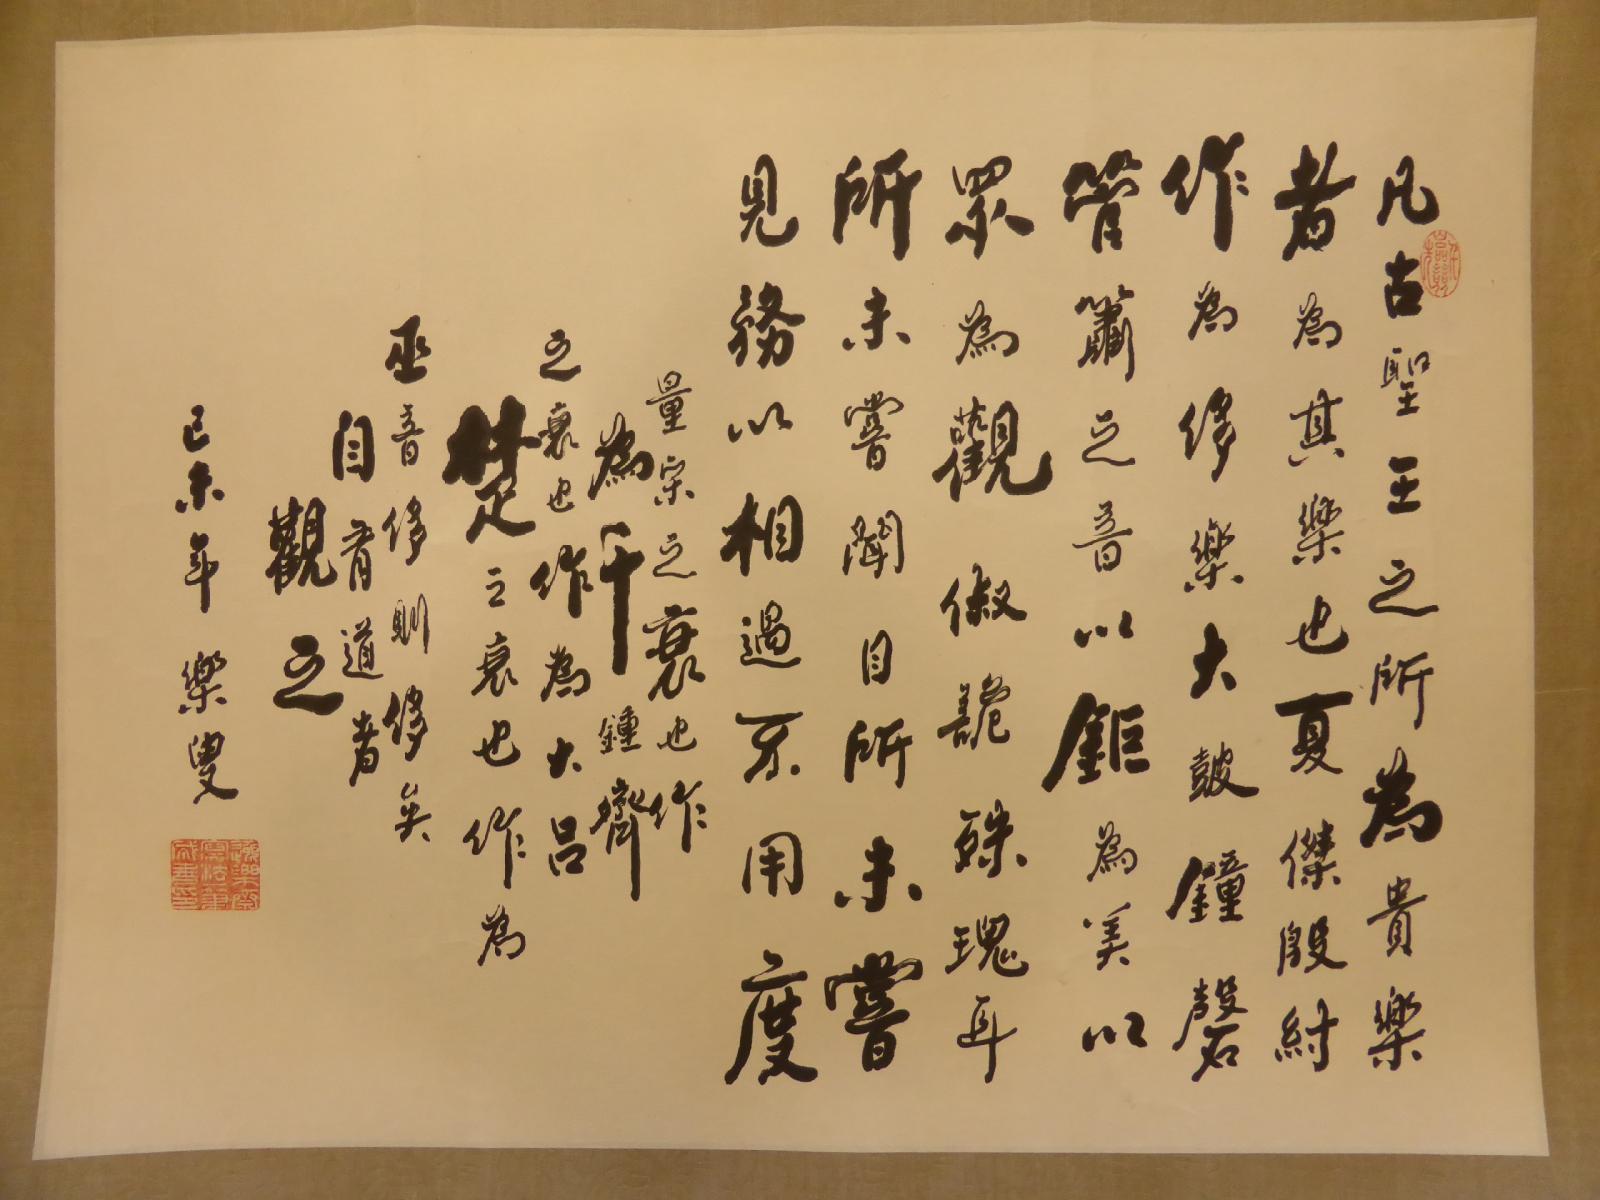 凡古聖王之所為貴樂
者為其樂也夏傑殷紂
作為侈樂大皷鐘磬
管簫之音以鉅為美以
眾為觀俶詭殊瑰耳
所未嘗聞目所未嘗
見務以相過不用度
量宋之衰也作
為千鍾齊
之衰也作為大呂
楚之衰也作為
巫音侈則侈矣
自有道者
觀之
己未年 樂叟